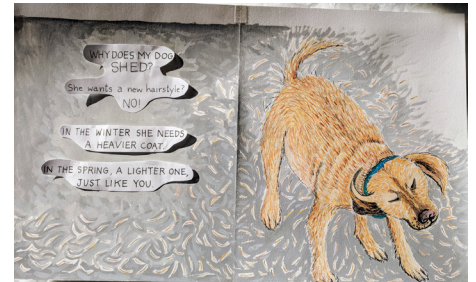 WHY DOES MY DOG
SHED?
She wants a new hairstyle?
NO!
IN THE WINTER SHE NEEDS
A HEAVIER COAT.
IN THE SPRING, A LIGHTER ONE,
JUST LIKE YOU.